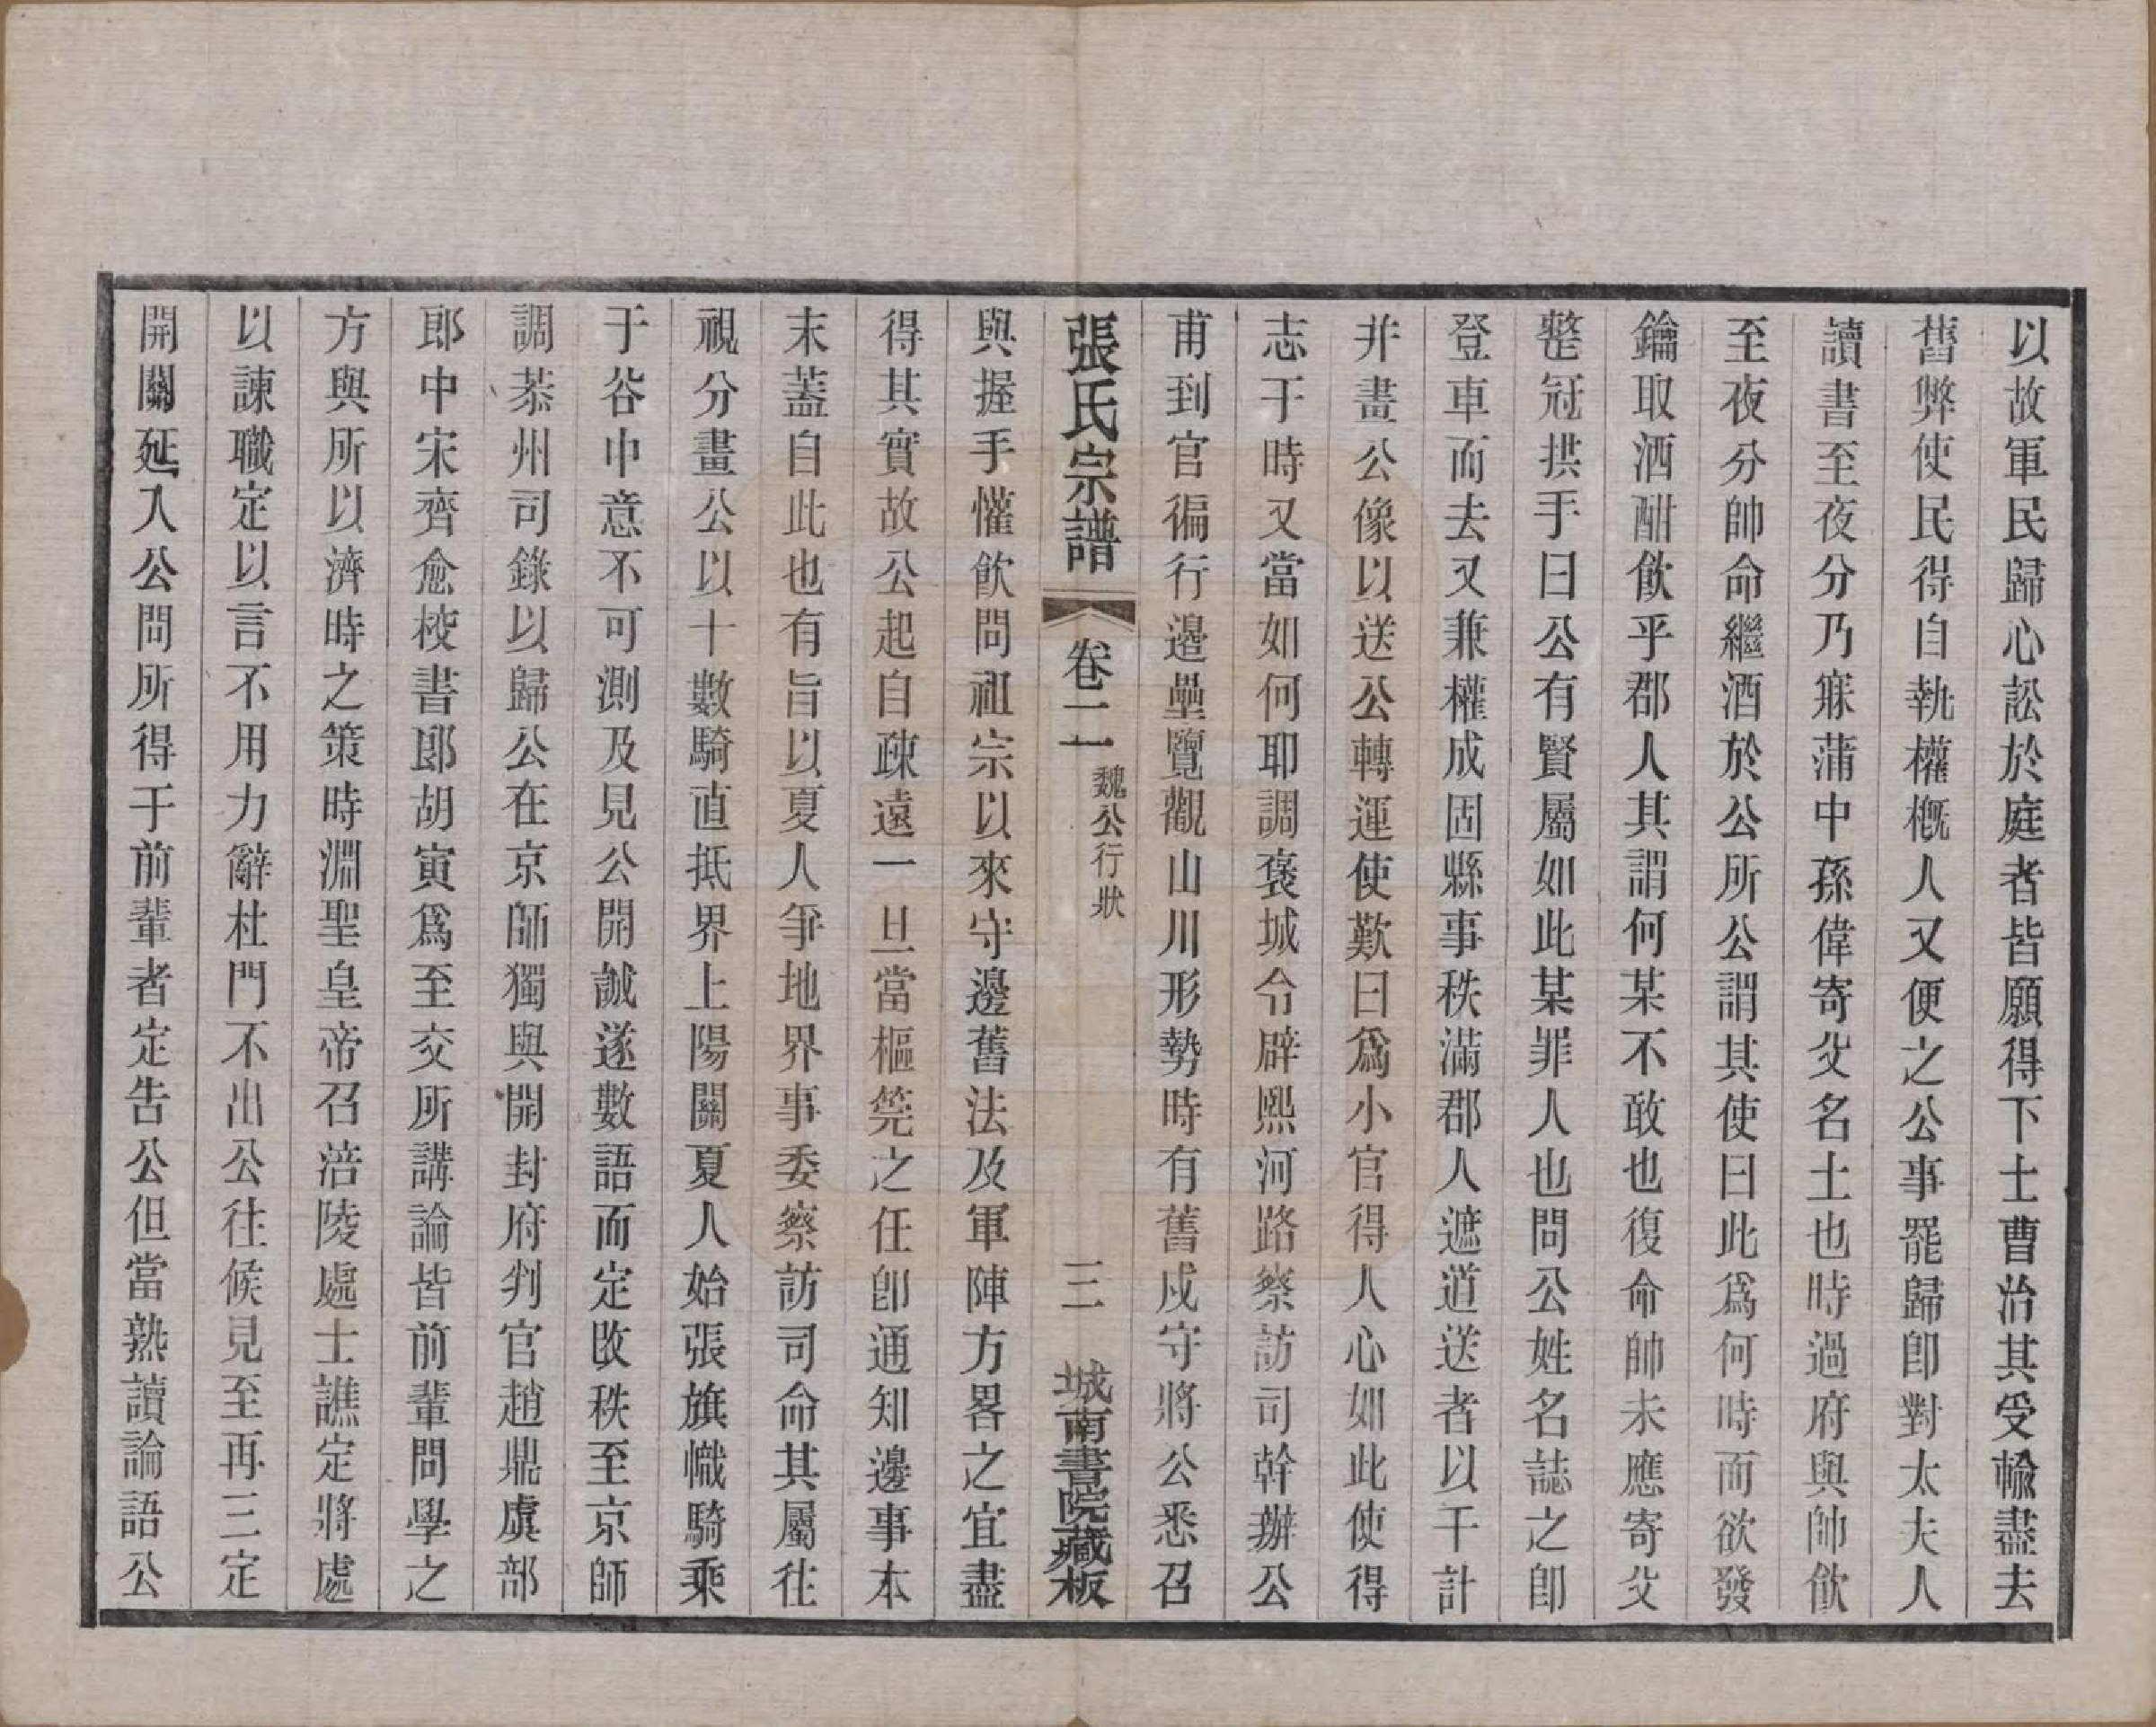 以故軍民歸心訟於庭者皆願得下士曹治其受輸盡去
舊弊使民得自執權槪人又便之公事罷歸卽對太夫人
讀書至夜分乃寐蒲中孫偉寄父名士也時過府與帥飮
至夜分帥命繼酒於公所公謂其使曰此爲何時而欲發
鑰取酒酣飮乎郡人其謂何某不敢也復命帥未應寄父
整冠拱手曰公有賢屬如此某罪人也問公姓名誌之卽
登車而去又兼權成固縣事秩滿郡人遮道送者以千計
并畫公像以送公轉運使歎曰爲小官得人心如此使得
志于時又當如何耶調褒城令辟熙河路察訪司幹辦公
甫到官徧行邊壘覽觀山川形勢時有舊戍守將公悉召
張氏宗譜 卷二 魏公行狀 三 城南書院藏板
與握手懽飮問祖宗以來守邊舊法及軍陣方畧之宜盡
得其實故公起自疎遠一旦當樞筦之任卽通知邊事本
末蓋自此也有旨以夏人爭地界事委察訪司命其屬往
視分畫公以十數騎直抵界上陽關夏人始張旗幟騎乘
于谷中意不可測及見公開誠遂數語而定改秩至京師
調恭州司錄以歸公在京師獨與開封府判官趙鼎虞部
郎中宋齊愈校書郎胡寅爲至交所講論皆前輩問學之
方與所以濟時之策時淵聖皇帝召涪陵處士譙定將處
以諫職定以言不用力辭杜門不出公往候見至再三定
開關延入公問所得于前輩者定告公但當熟讀論語公